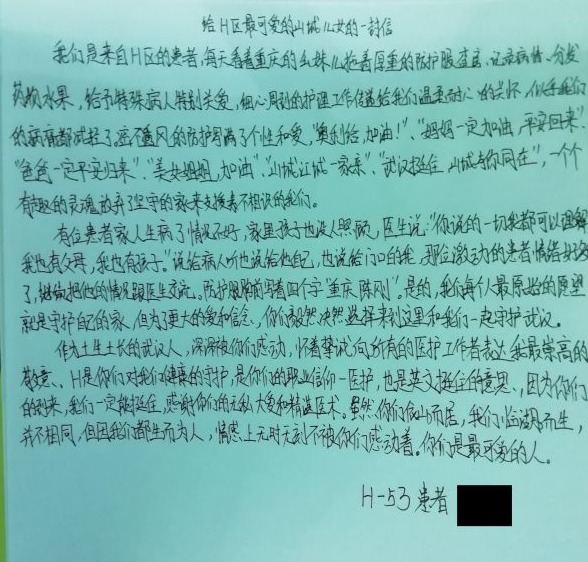 给H区最可爱的山城儿女的一封信
我们是来自H区的患者,每天看着重庆的幺妹儿拖着厚重的防护服查房、记录病情、分发
药物水果,给予特殊病人特别关爱,细心周到的护理工作传递给我们温柔耐心的关怀,似乎我们
的病痛都减轻了,密不透风的防护写满了个性和爱,"奥利给,加油!"、"妈妈一定加油,平安回来"、
"爸爸一定平安归来"、"美女姐姐,加油"、"山城江城一家亲"、"武汉挺住,山城与你同在",一个个
有趣的灵魂放弃了坚守的家来支援素不相识的我们。
有位患者家人生病了情况不好,家里孩子也没人照顾,医生说:"你说的一切我都可以理解
我也有父母,我也有孩子。"说给病人听也说给他自己,也说给门口的我,那位激动的患者情绪好多
了,继续把他的情况跟医生交流。防护服胸前写着四个字"重庆 陈刚"。是的,我们每个人最原始的愿望
就是守护自己的家,但为了更大的爱和信念,你们毅然决然选择来到这里和我们一起守护武汉。
作为土生土长的武汉人,深深被你们感动,怀着挚诚向所有的医护工作者表达我最崇高的
敬意、H是你们对我们健康的守护,是你们的职业信仰—医护,也是英文挺住的意思、因为你们
的到来,我们一定能挺住,感谢你们的无私大爱和精湛医术。虽然你们依山而居,我们临湖而生,
并不相同,但因我们都生而为人,情感上无时无刻不被你们感动着。你们是最可爱的人。
H-53患者